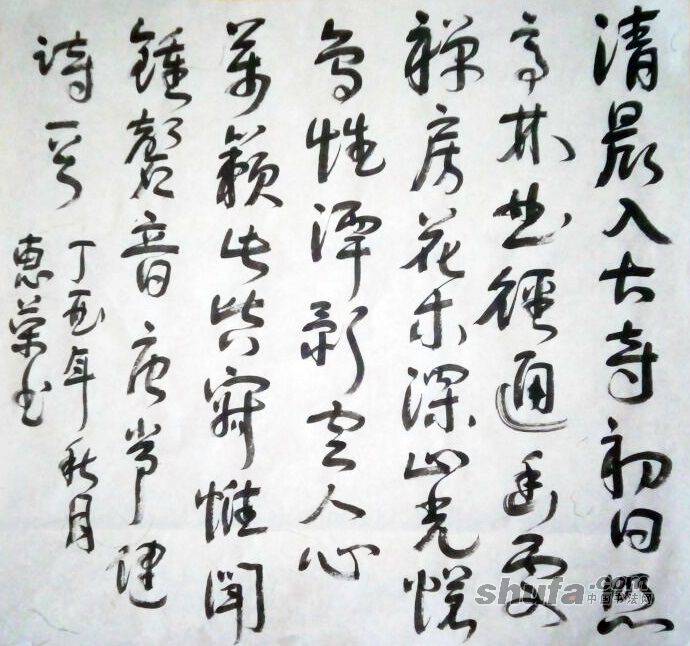 清晨入古寺初日照
高林曲徑通幽處
禪房花木深山光悦
鳥性潭影空人心
萬籟此皆寂惟聞
鍾磬音唐常建
詩一首
丁酉年秋月
惠荣书
shufa.com
中国书法网